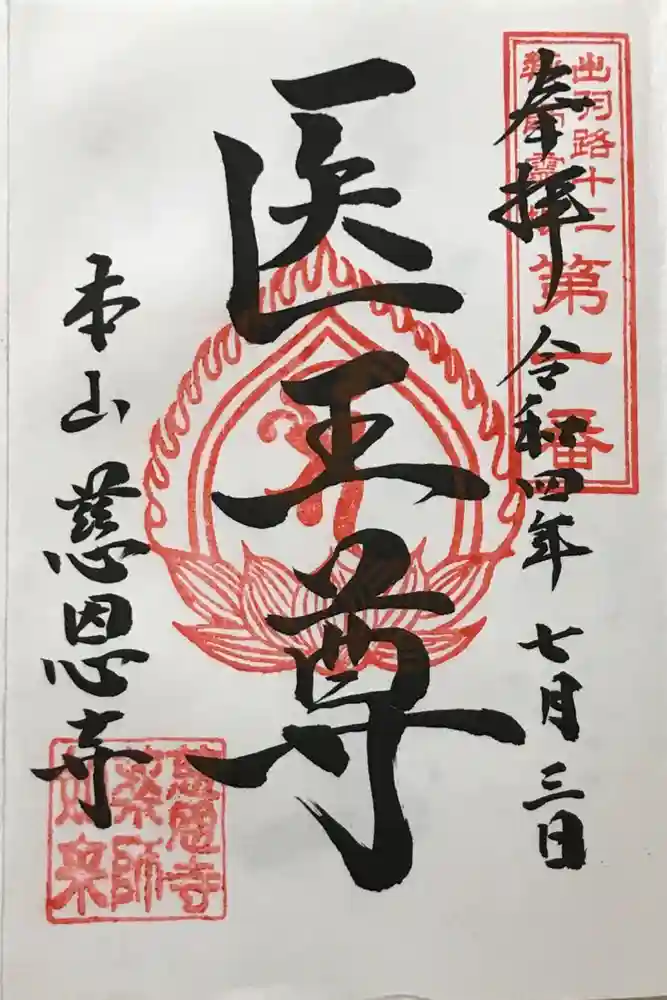 奉拝 令和四年 七月 三日
出羽路十二
薬師霊場
第一番
医王尊
本山 慈恩寺
慈恩寺
薬師
如来